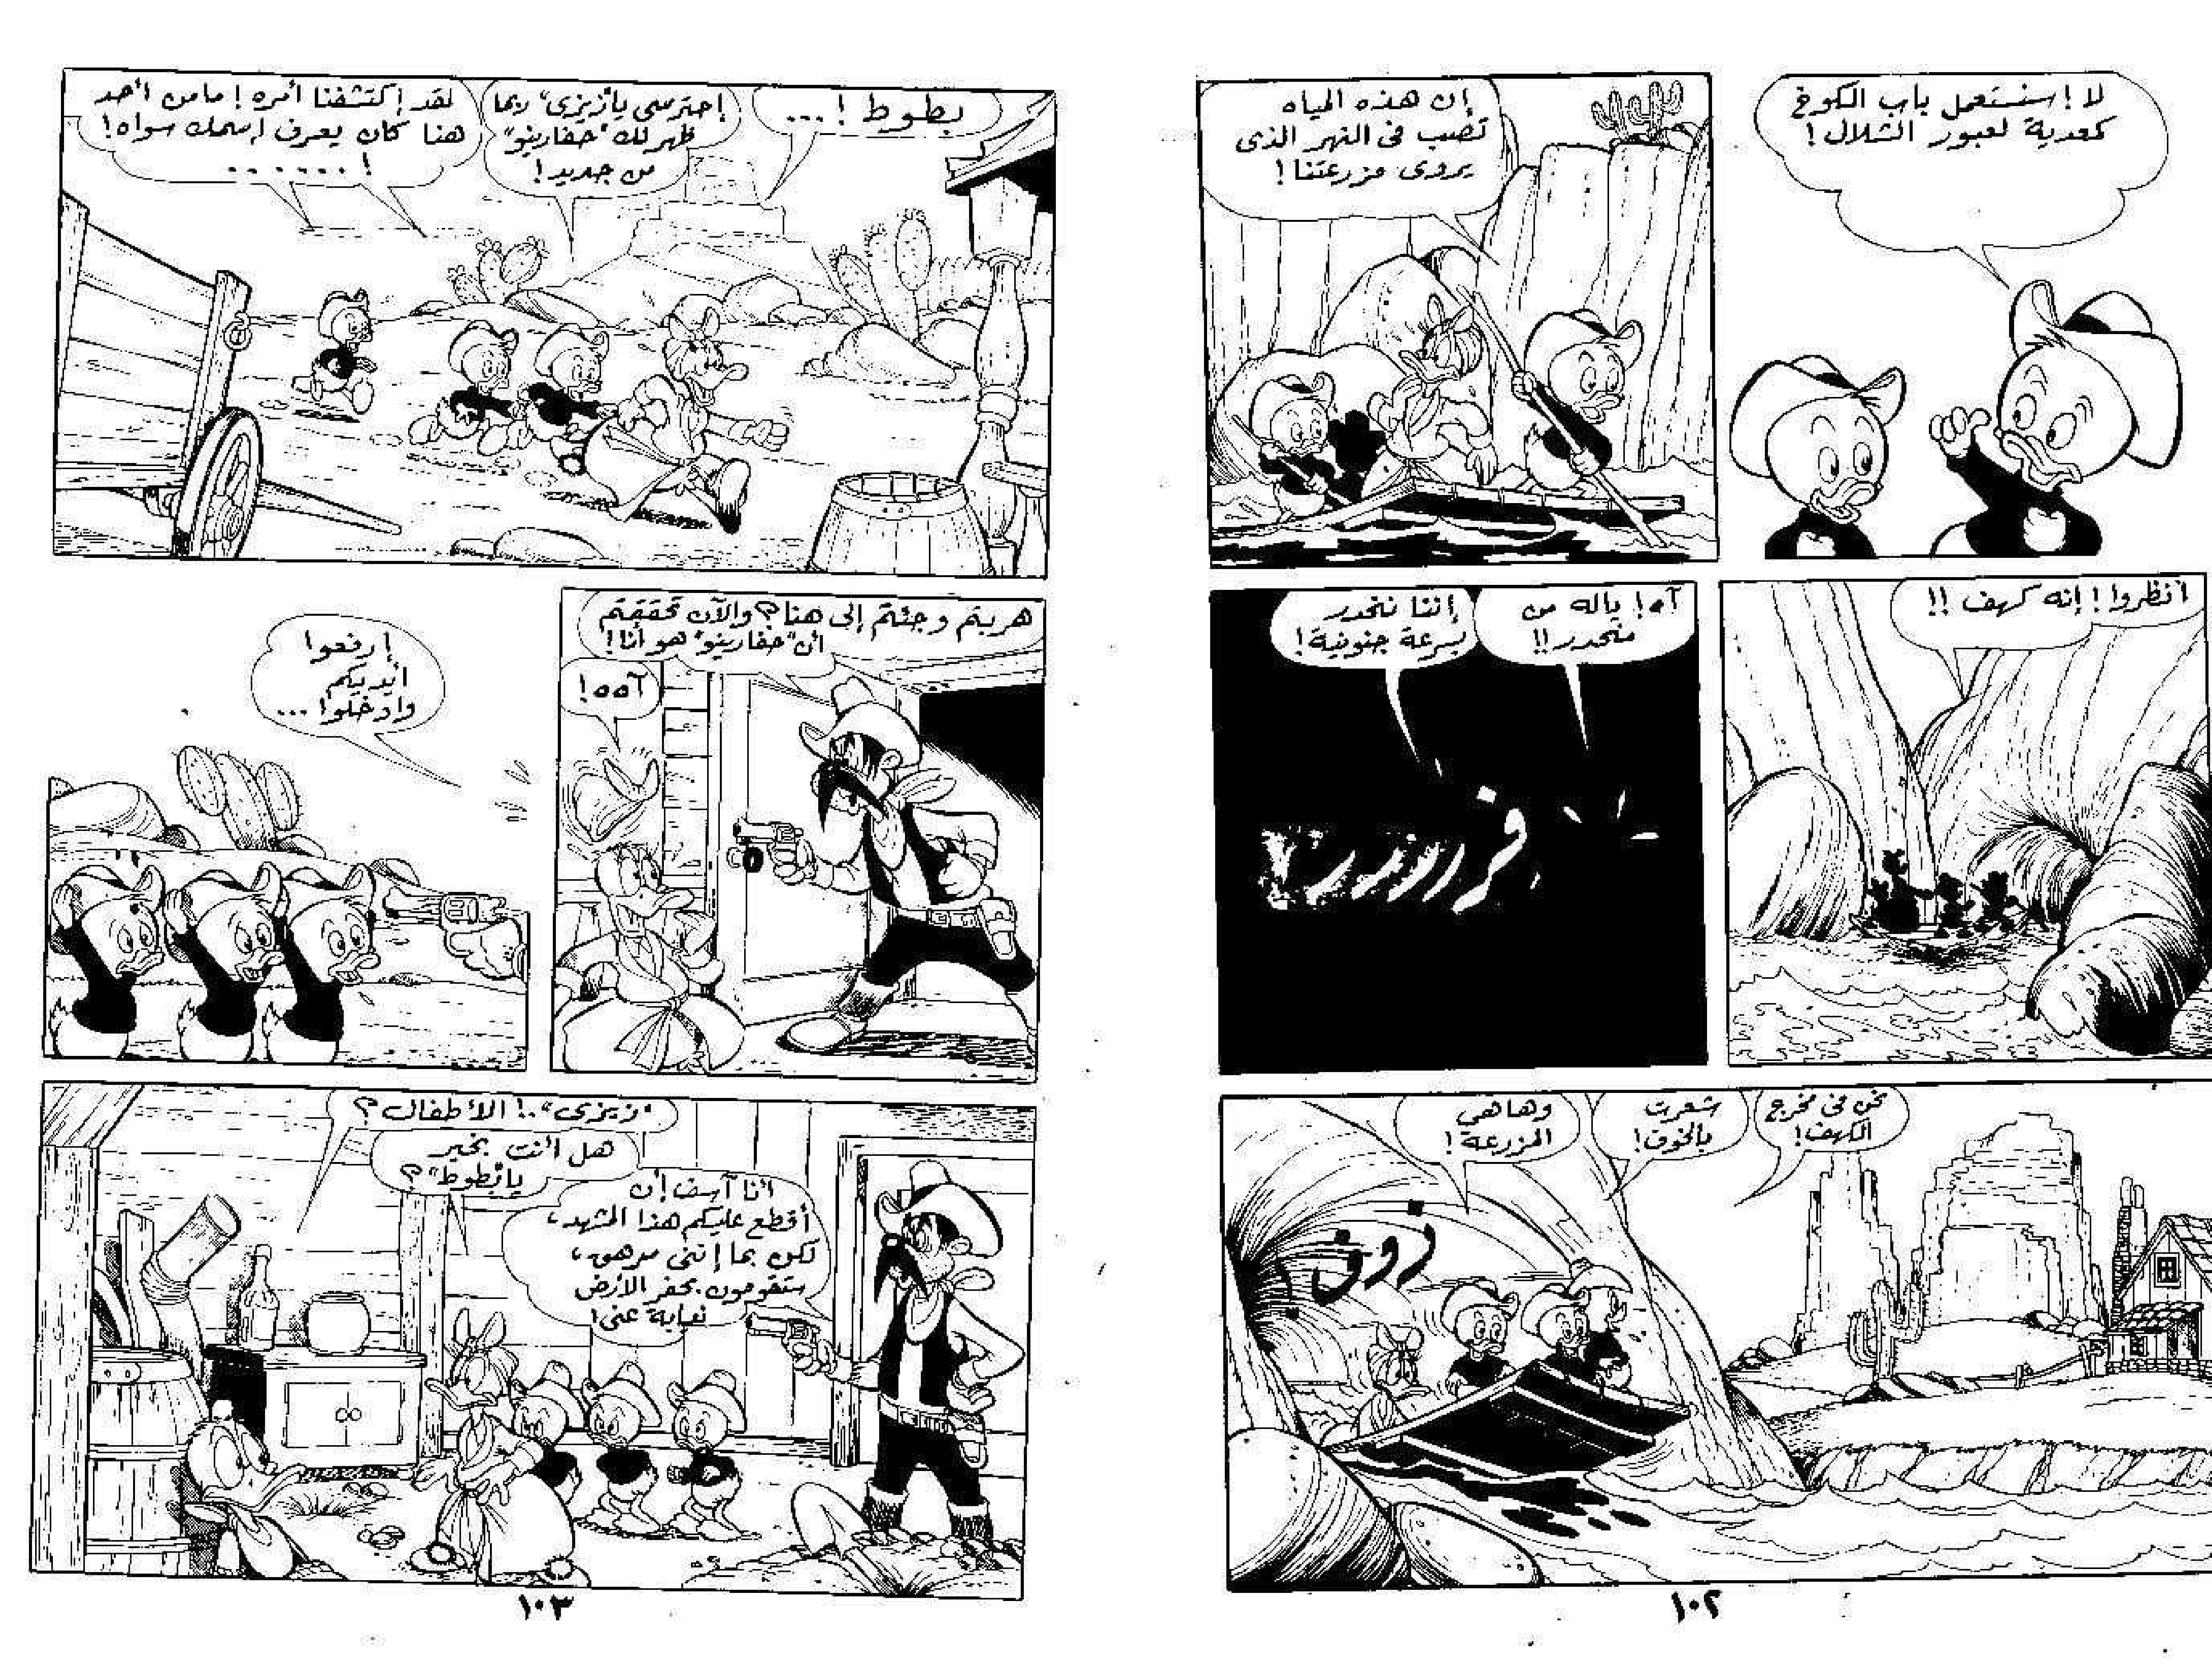 لا ! سنستعمل باب الكوخ
كمعدية لعبور الشلال !
إن هذه المياه
تصب فى النهر الذى
يروى مزرعتنا !
أنظروا ! إنه كهف !!
آه ! ياله من
منحدر !!
إننا ننحدر
بسرعة جنونية !
نحن فى مخرج
الكهف !
شعرت
بالخوف !
وهاهى
المزرعة !
١٠٢
بطوط ! ...
إحترسى يا "زيزى" ربما
ظهر لك "حفارينو"
من جديد !
لقد إكتشفنا أمره ! مامن أحد
هنا كان يعرف اسمك سواه !
! ......
هربتم وجئتم إلى هنا ؟ والآن تحققتم
أن "حفارينو" هو أنا !
آهه !
إرفعوا
أيديكم
وادخلوا ...
"زيزى" ..! الأطفال ؟
هل أنت بخير
يا "بطوط" ؟
أنا آسف أن
أقطع عليكم هذا المشهد ،
لكن بما إننى مرهق ،
ستقومون بحفر الأرض
نيابة عنى !
١٠٣